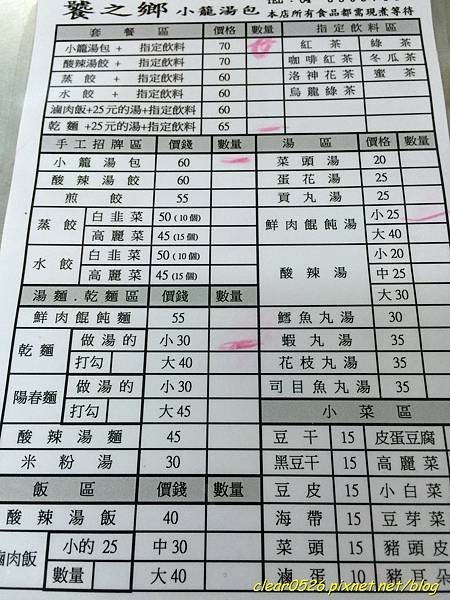 饕之鄉 小籠湯包 本店所有食品都需現煮等待
套餐區 價格 數量
小籠湯包 + 指定飲料 70
酸辣湯餃 + 指定飲料 70
蒸餃 + 指定飲料 60
水餃 + 指定飲料 60
滷肉飯+25元的湯+指定飲料 60
乾麵+25元的湯+指定飲料 65
指定飲料區
紅茶 綠茶
咖啡紅茶 冬瓜茶
洛神花茶 蜜茶
烏龍綠茶
手工招牌區 價錢 數量
小籠湯包 60
酸辣湯餃 60
煎餃 55
蒸餃 白韭菜 50(10個)
高麗菜 45(15個)
水餃 白韭菜 50(10個)
高麗菜 45(15個)
湯麵.乾麵區 價錢 數量
鮮肉餛飩麵 55
乾麵 做湯的 小30
打勾 大40
陽春麵 做湯的 小30
打勾 大45
酸辣湯麵 45
米粉湯 30
飯區 價錢 數量
酸辣湯飯 40
滷肉飯 小的25 中30
數量 大40
湯區 價格 數量
菜頭湯 20
蛋花湯 25
貢丸湯 25
鮮肉餛飩湯 小25
大40
酸辣湯 小20
中25
大30
鱈魚丸湯 30
蝦丸湯 35
花枝丸湯 35
司目魚丸湯 35
小菜區
豆干 15 皮蛋豆腐
黑豆干 15 高麗菜
豆皮 15 小白菜
海帶 15 豆芽菜
菜頭 15 豬頭皮
滷蛋 10 豬耳朵
clear0526.pixnet.net/blog